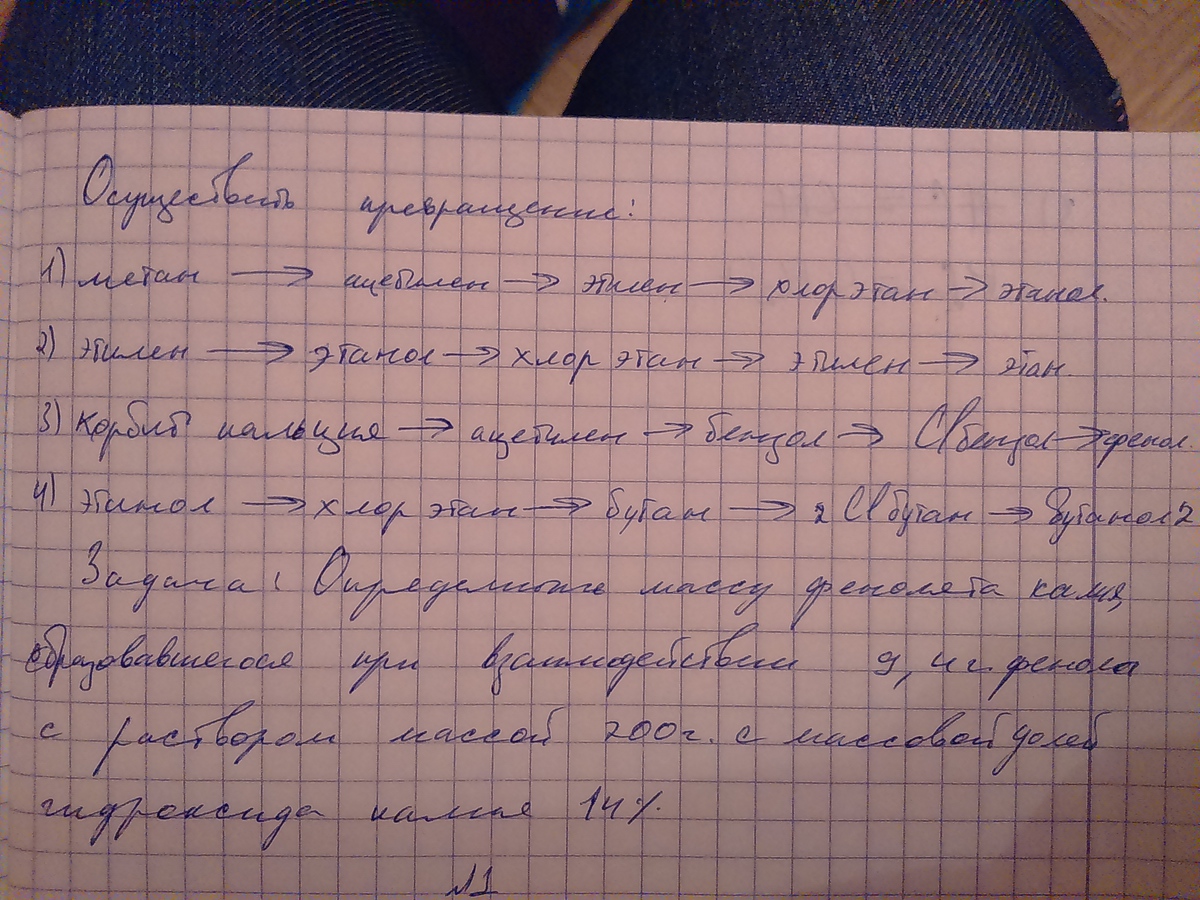 Осуществить превращение:
1) метан → ацетилен → этилен → хлор этан → этанол.
2) этилен → этанол → хлор этан → этилен → этан.
3) Карбид кальция → ацетилен → бензол → Cl бензол → фенол.
4) этанол → хлор этан → бутан → 2 Cl бутан → Бутанол 2
Задача: Определить массу фенолята калия,
образовавшегося при взаимодействии 9,4 г. фенола
с раствором массой 200 г. с массовой долей
гидроксида калия 14%.
№1